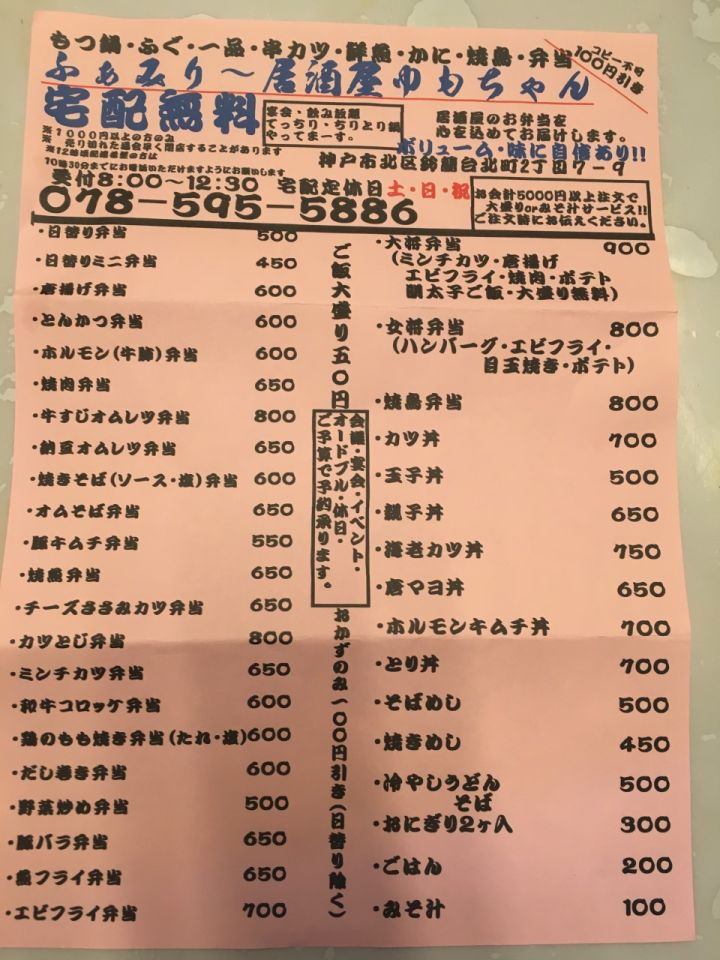 もつ鍋・ふぐ・一品・串カツ・鮮魚・かに・焼鳥・弁当
コピー不可
100円引券
ふぁみり～居酒屋ゆもちゃん
宅配無料
宴会・飲み放題
てっちり・ちりとり鍋
やってまーす。
居酒屋のお弁当を
心を込めてお届けします。
ボリューム・味に自信あり!!
※1000円以上の方のみ
※売り切れた場合早く閉店することがあります
※12時頃配達希望の方は
10時30分までにお電話いただけますようにお願いします
神戸市北区鈴蘭台北町2丁目7－9
受付8:00～12:30 宅配定休日土・日・祝
078-595-5886
お会計5000円以上注文で
大盛りorみそ汁サービス!!
ご注文時にお伝えください。
・日替り弁当 500
・日替りミニ弁当 450
・唐揚げ弁当 600
・とんかつ弁当 600
・ホルモン(牛肺)弁当 600
・焼肉弁当 650
・牛すじオムレツ弁当 800
・納豆オムレツ弁当 650
・焼きそば(ソース・塩)弁当 600
・オムそば弁当 650
・豚キムチ弁当 550
・焼魚弁当 650
・チーズささみカツ弁当 650
・カツとじ弁当 800
・ミンチカツ弁当 650
・和牛コロッケ弁当 600
・鶏のもも焼き弁当(たれ・塩) 600
・だし巻き弁当 600
・野菜炒め弁当 500
・豚バラ弁当 650
・魚フライ弁当 650
・エビフライ弁当 700
ご飯大盛り五〇円
会議・宴会・イベント・
オードブル・休日・
ご予算で予約承ります。
おかずのみ一〇〇円引き(日替り除く)
・大将弁当 900
(ミンチカツ・唐揚げ
エビフライ・焼肉・ポテト
明太子ご飯・大盛り無料)
・女将弁当 800
(ハンバーグ・エビフライ・
目玉焼き・ポテト)
・焼鳥弁当 800
・カツ丼 700
・玉子丼 500
・親子丼 650
・海老カツ丼 750
・唐マヨ丼 650
・ホルモンキムチ丼 700
・とり丼 700
・そばめし 500
・焼きめし 450
・冷やしうどん 500
そば
・おにぎり2ヶ入 300
・ごはん 200
・みそ汁 100